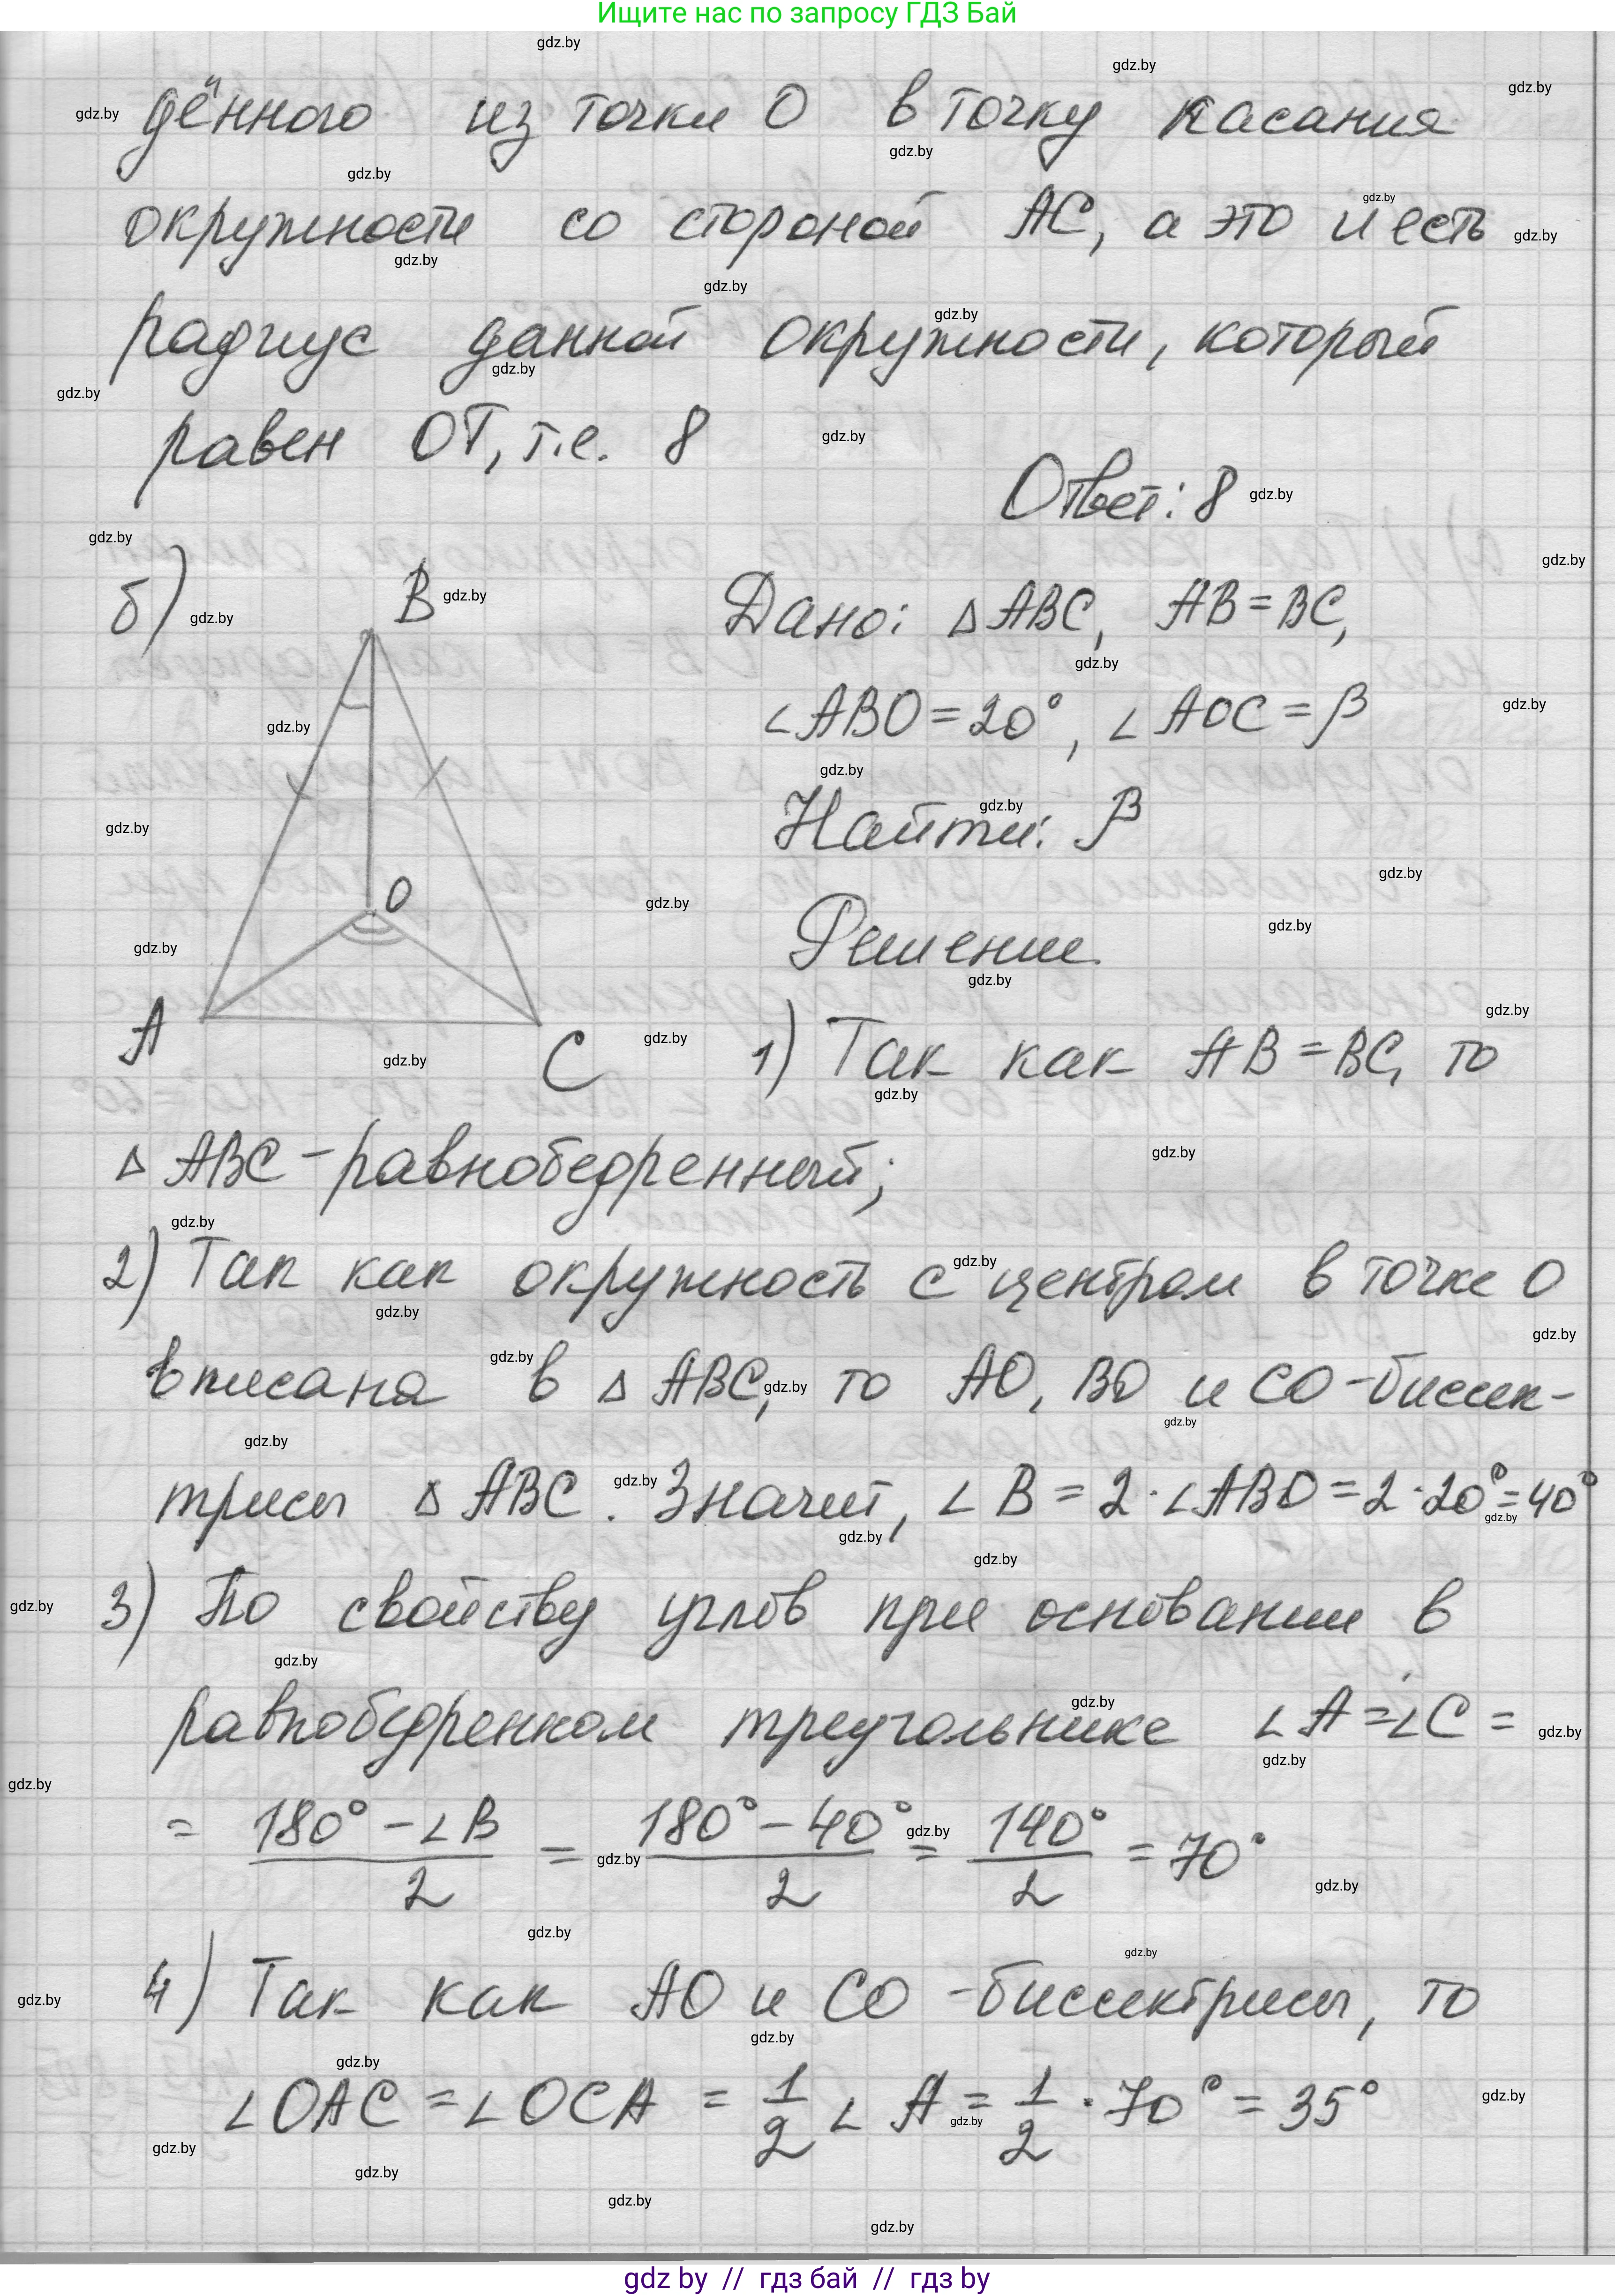 Ищите нас по запросу ГДЗ Бай
дённого из точки О в точку касания
окружности со стороной АС, а это и есть
радиус данной окружности, который
равен ОТ, т.е. 8
Ответ: 8
б)
B
Дано: △ ABC, AB = BC,
∠ ABO = 20°, ∠ AOC = β
Найти: β
O
Решение
A
C
1) Так как AB = BC, то
△ ABC - равнобедренный;
2) Так как окружность с центром в точке О
вписана в △ ABC, то AO, BO и CO - биссек-
трисы △ ABC. Значит, ∠ B = 2 · ∠ ABO = 2 · 20° = 40°
3) По свойству углов при основании в
равнобедренном треугольнике ∠ A = ∠ C =
= (180° - ∠ B)/2 = (180° - 40°)/2 = 140°/2 = 70°
4) Так как AO и CO - биссектрисы, то
∠ OAC = ∠ OCA = 1/2 ∠ A = 1/2 · 70° = 35°
gdz by // гдз бай // гдз by